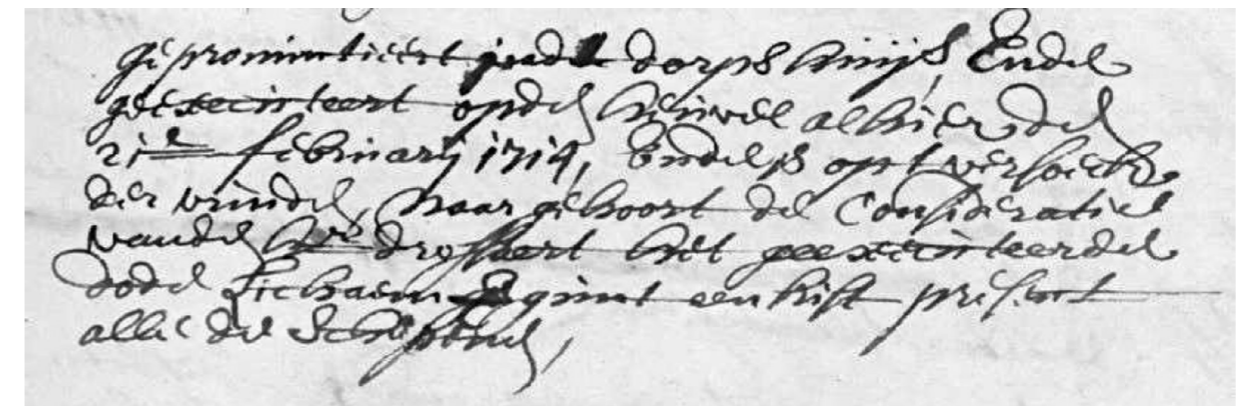 gepronuntieert inde dorps huijs, Ende
geexecuteert opden heuvel alhier den
21e februarij 1714, Ende is opt versoeck
der vrinden, naar gehoort de Consideratie
vanden hr drossaert het geexecuteerde
dode Lichaem gegunt een kist present
alle de Schepenen,